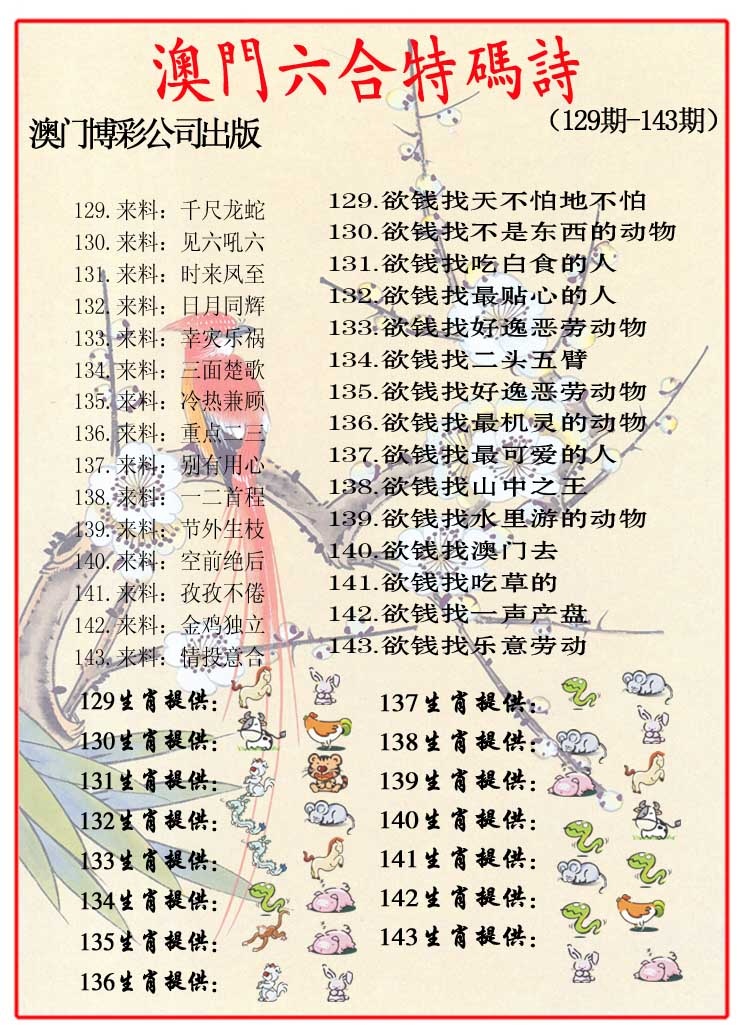 澳門六合特碼詩
澳门博彩公司出版
（129期-143期）
129.来料：千尺龙蛇
130.来料：见六吼六
131.来料：时来凤至
132.来料：日月同辉
133.来料：幸灾乐祸
134.来料：三面楚歌
135.来料：冷热兼顾
136.来料：重点二三
137.来料：别有用心
138.来料：一二首程
139.来料：节外生枝
140.来料：空前绝后
141.来料：孜孜不倦
142.来料：金鸡独立
143.来料：情投意合
129.欲钱找天不怕地不怕
130.欲钱找不是东西的动物
131.欲钱找吃白食的人
132.欲钱找最贴心的人
133.欲钱找好逸恶劳动物
134.欲钱找二头五臂
135.欲钱找好逸恶劳动物
136.欲钱找最机灵的动物
137.欲钱找最可爱的人
138.欲钱找山中之王
139.欲钱找水里游的动物
140.欲钱找澳门去
141.欲钱找吃草的
142.欲钱找一声产盘
143.欲钱找乐意劳动
129生肖提供：
130生肖提供：
131生肖提供：
132生肖提供：
133生肖提供：
134生肖提供：
135生肖提供：
136生肖提供：
137生肖提供：
138生肖提供：
139生肖提供：
140生肖提供：
141生肖提供：
142生肖提供：
143生肖提供：